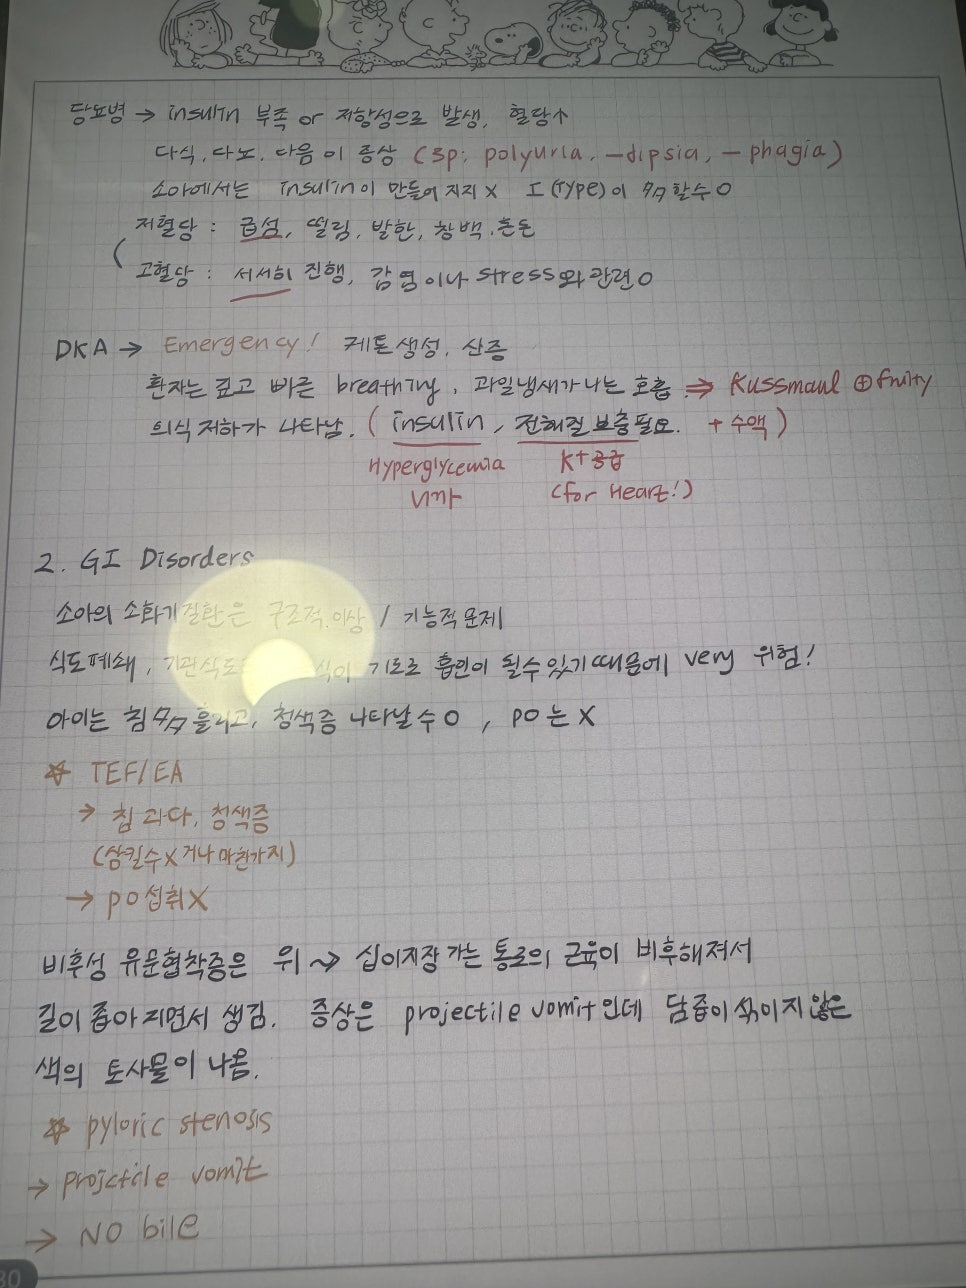 당뇨병 → insulin 부족 or 저항성으로 발생, 혈당↑
다식, 다뇨, 다음 이 증상 (3p; polyuria, -dipsia, -phagia)
소아에서는 insulin이 만들어지지 X I(Type)이 多多 할수 O
저혈당 : 급성, 떨림, 발한, 창백, 혼돈
고혈당 : 서서히 진행, 감염이나 stress와 관련 O
DKA → Emergency! 케톤생성, 산증
환자는 깊고 빠른 breathing, 과일냄새가 나는 호흡 ⇒ Kussmaul ⊕ fruity
의식저하가 나타남. (insulin, 전해질 보충필요. + 수액)
Hyperglycemia K+공급
니까 (for Heart!)
2. GI Disorders
소아의 소화기질환은 구조적.이상 / 기능적 문제
식도폐쇄, 기관식도 기도로 흡인이 될수있기때문에 very 위험!
아이는 침 多多 흘리고, 청색증 나타날수 O , po는 X
☆ TEF/EA
→ 침 과다, 청색증
(삼킬수 X 거나 마찬가지)
→ po섭취 X
비후성 유문협착증은 위 → 십이지장 가는 통로의 근육이 비후해져서
길이 좁아지면서 생김. 증상은 projectile vomit인데 담즙이 섞이지않은
색의 토사물이 나옴.
☆ pyloric stenosis
→ projctile vomit
→ NO bile
30